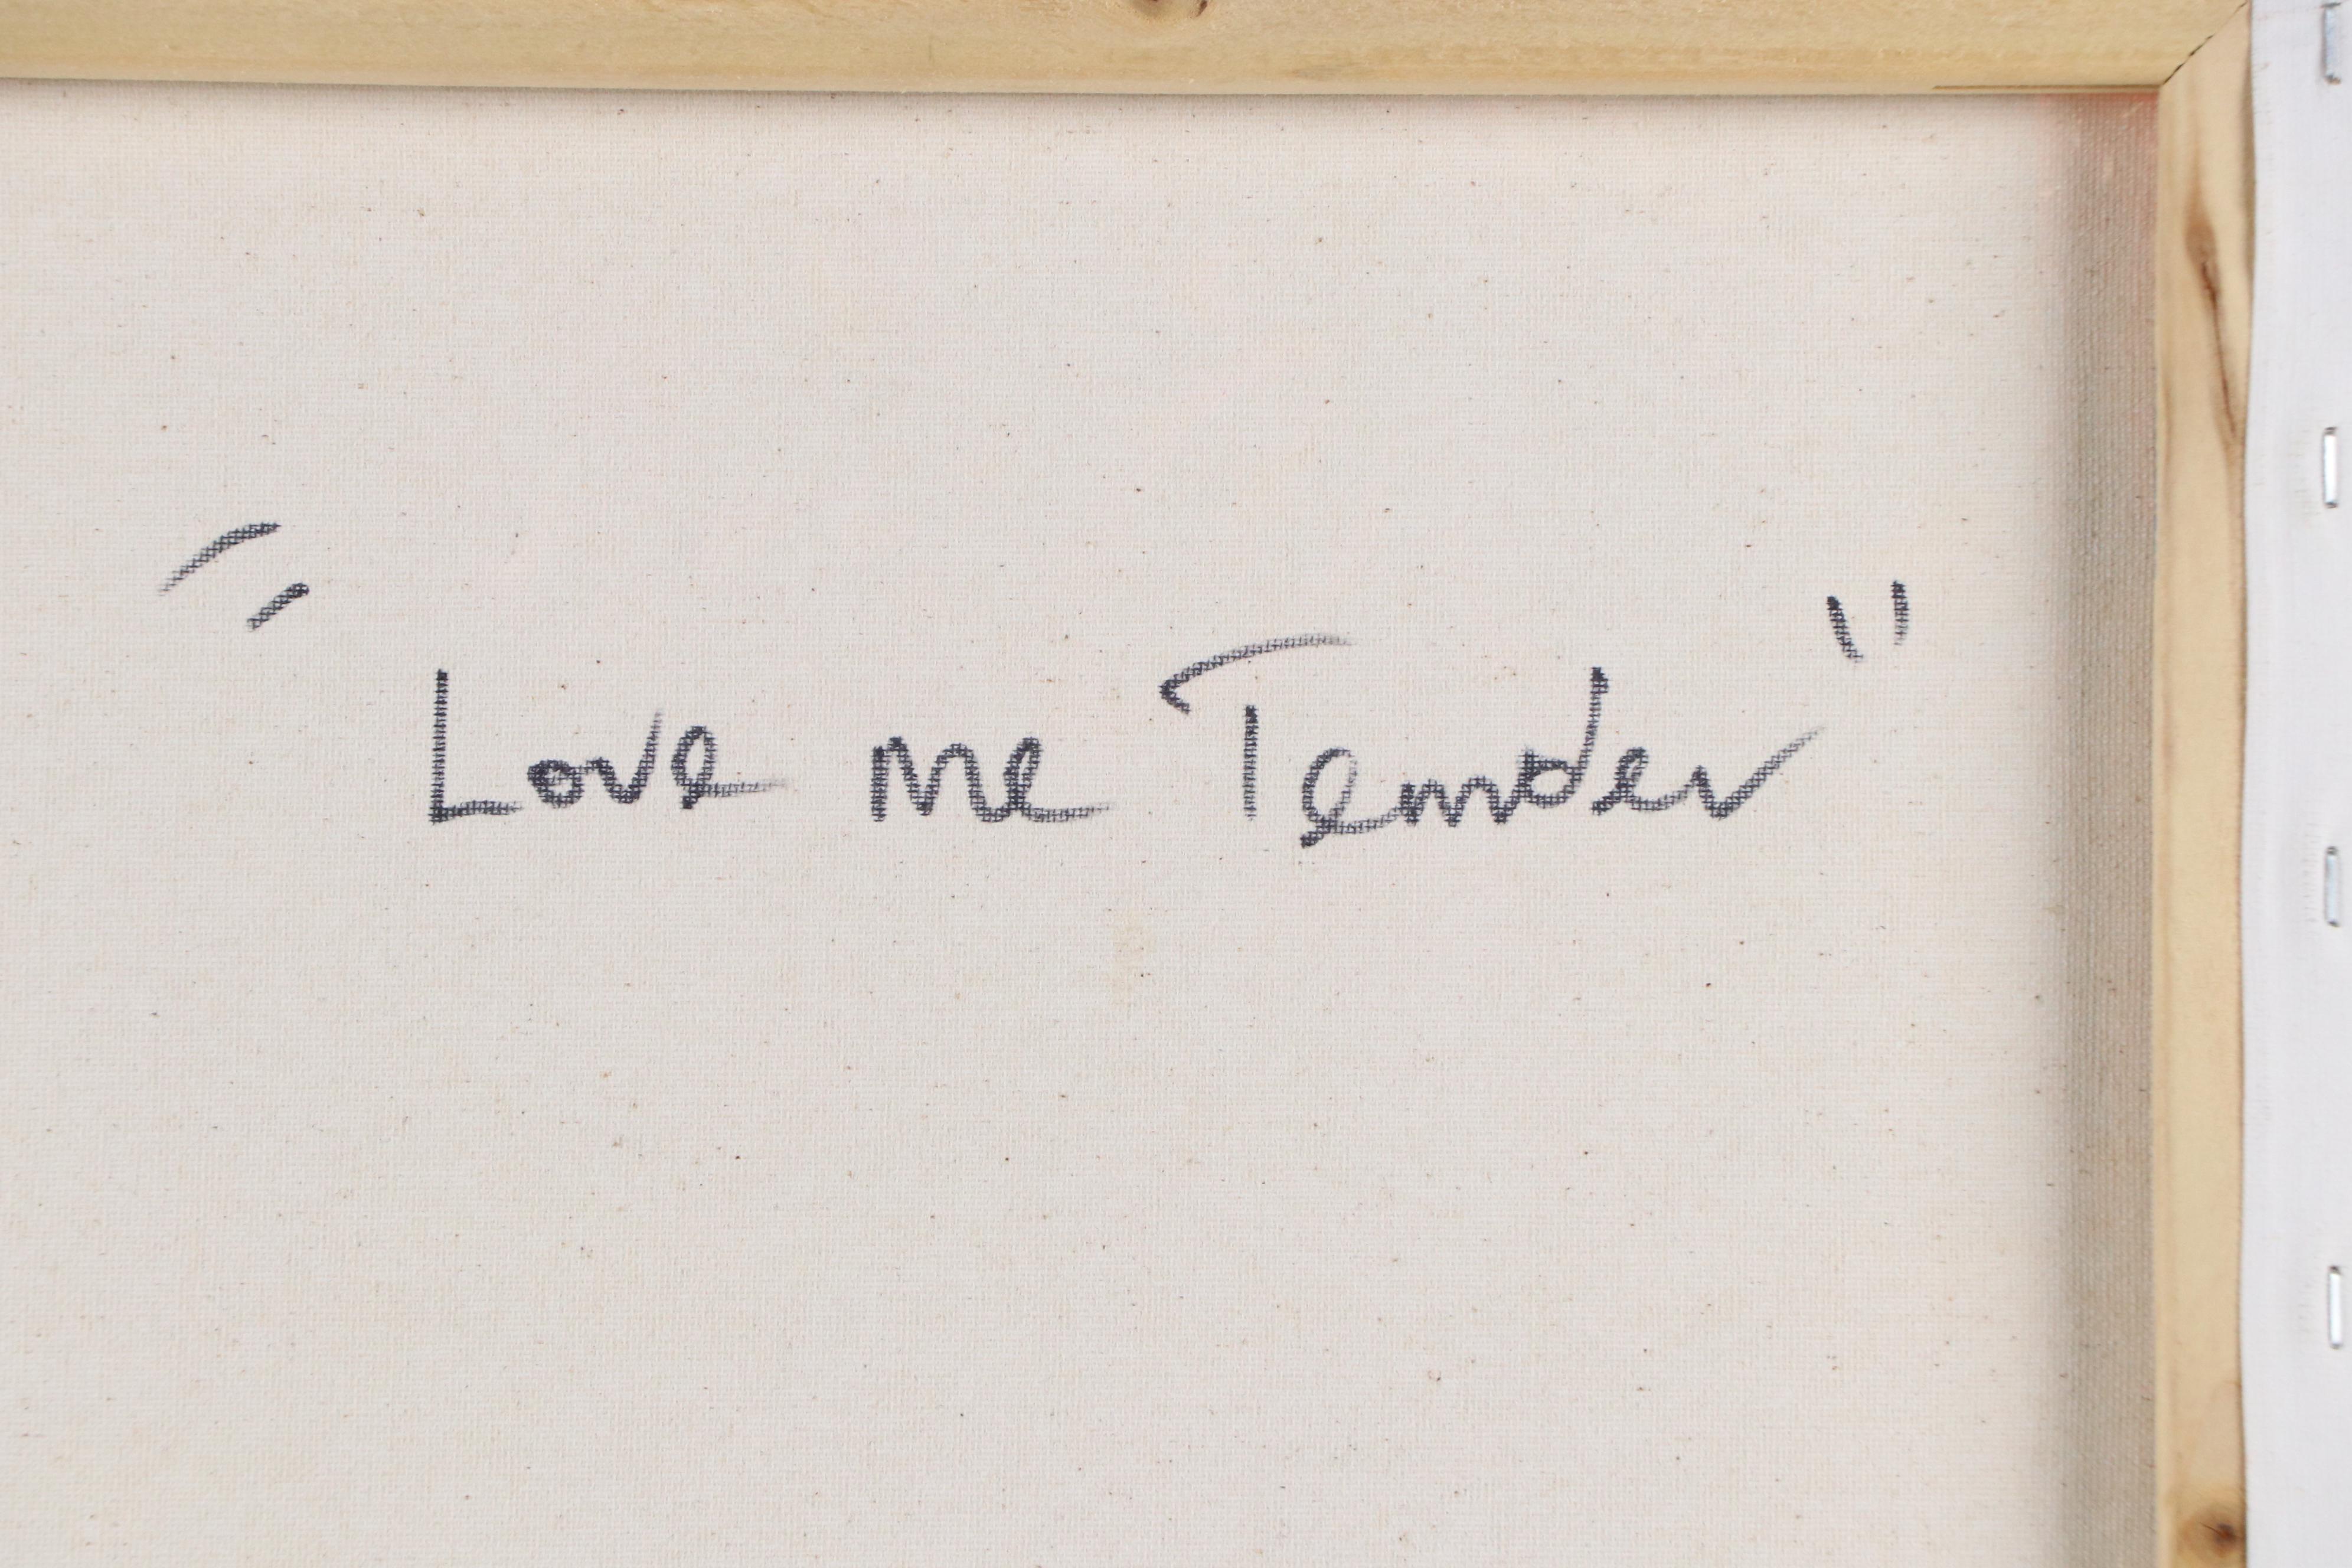 "Love me Tender"